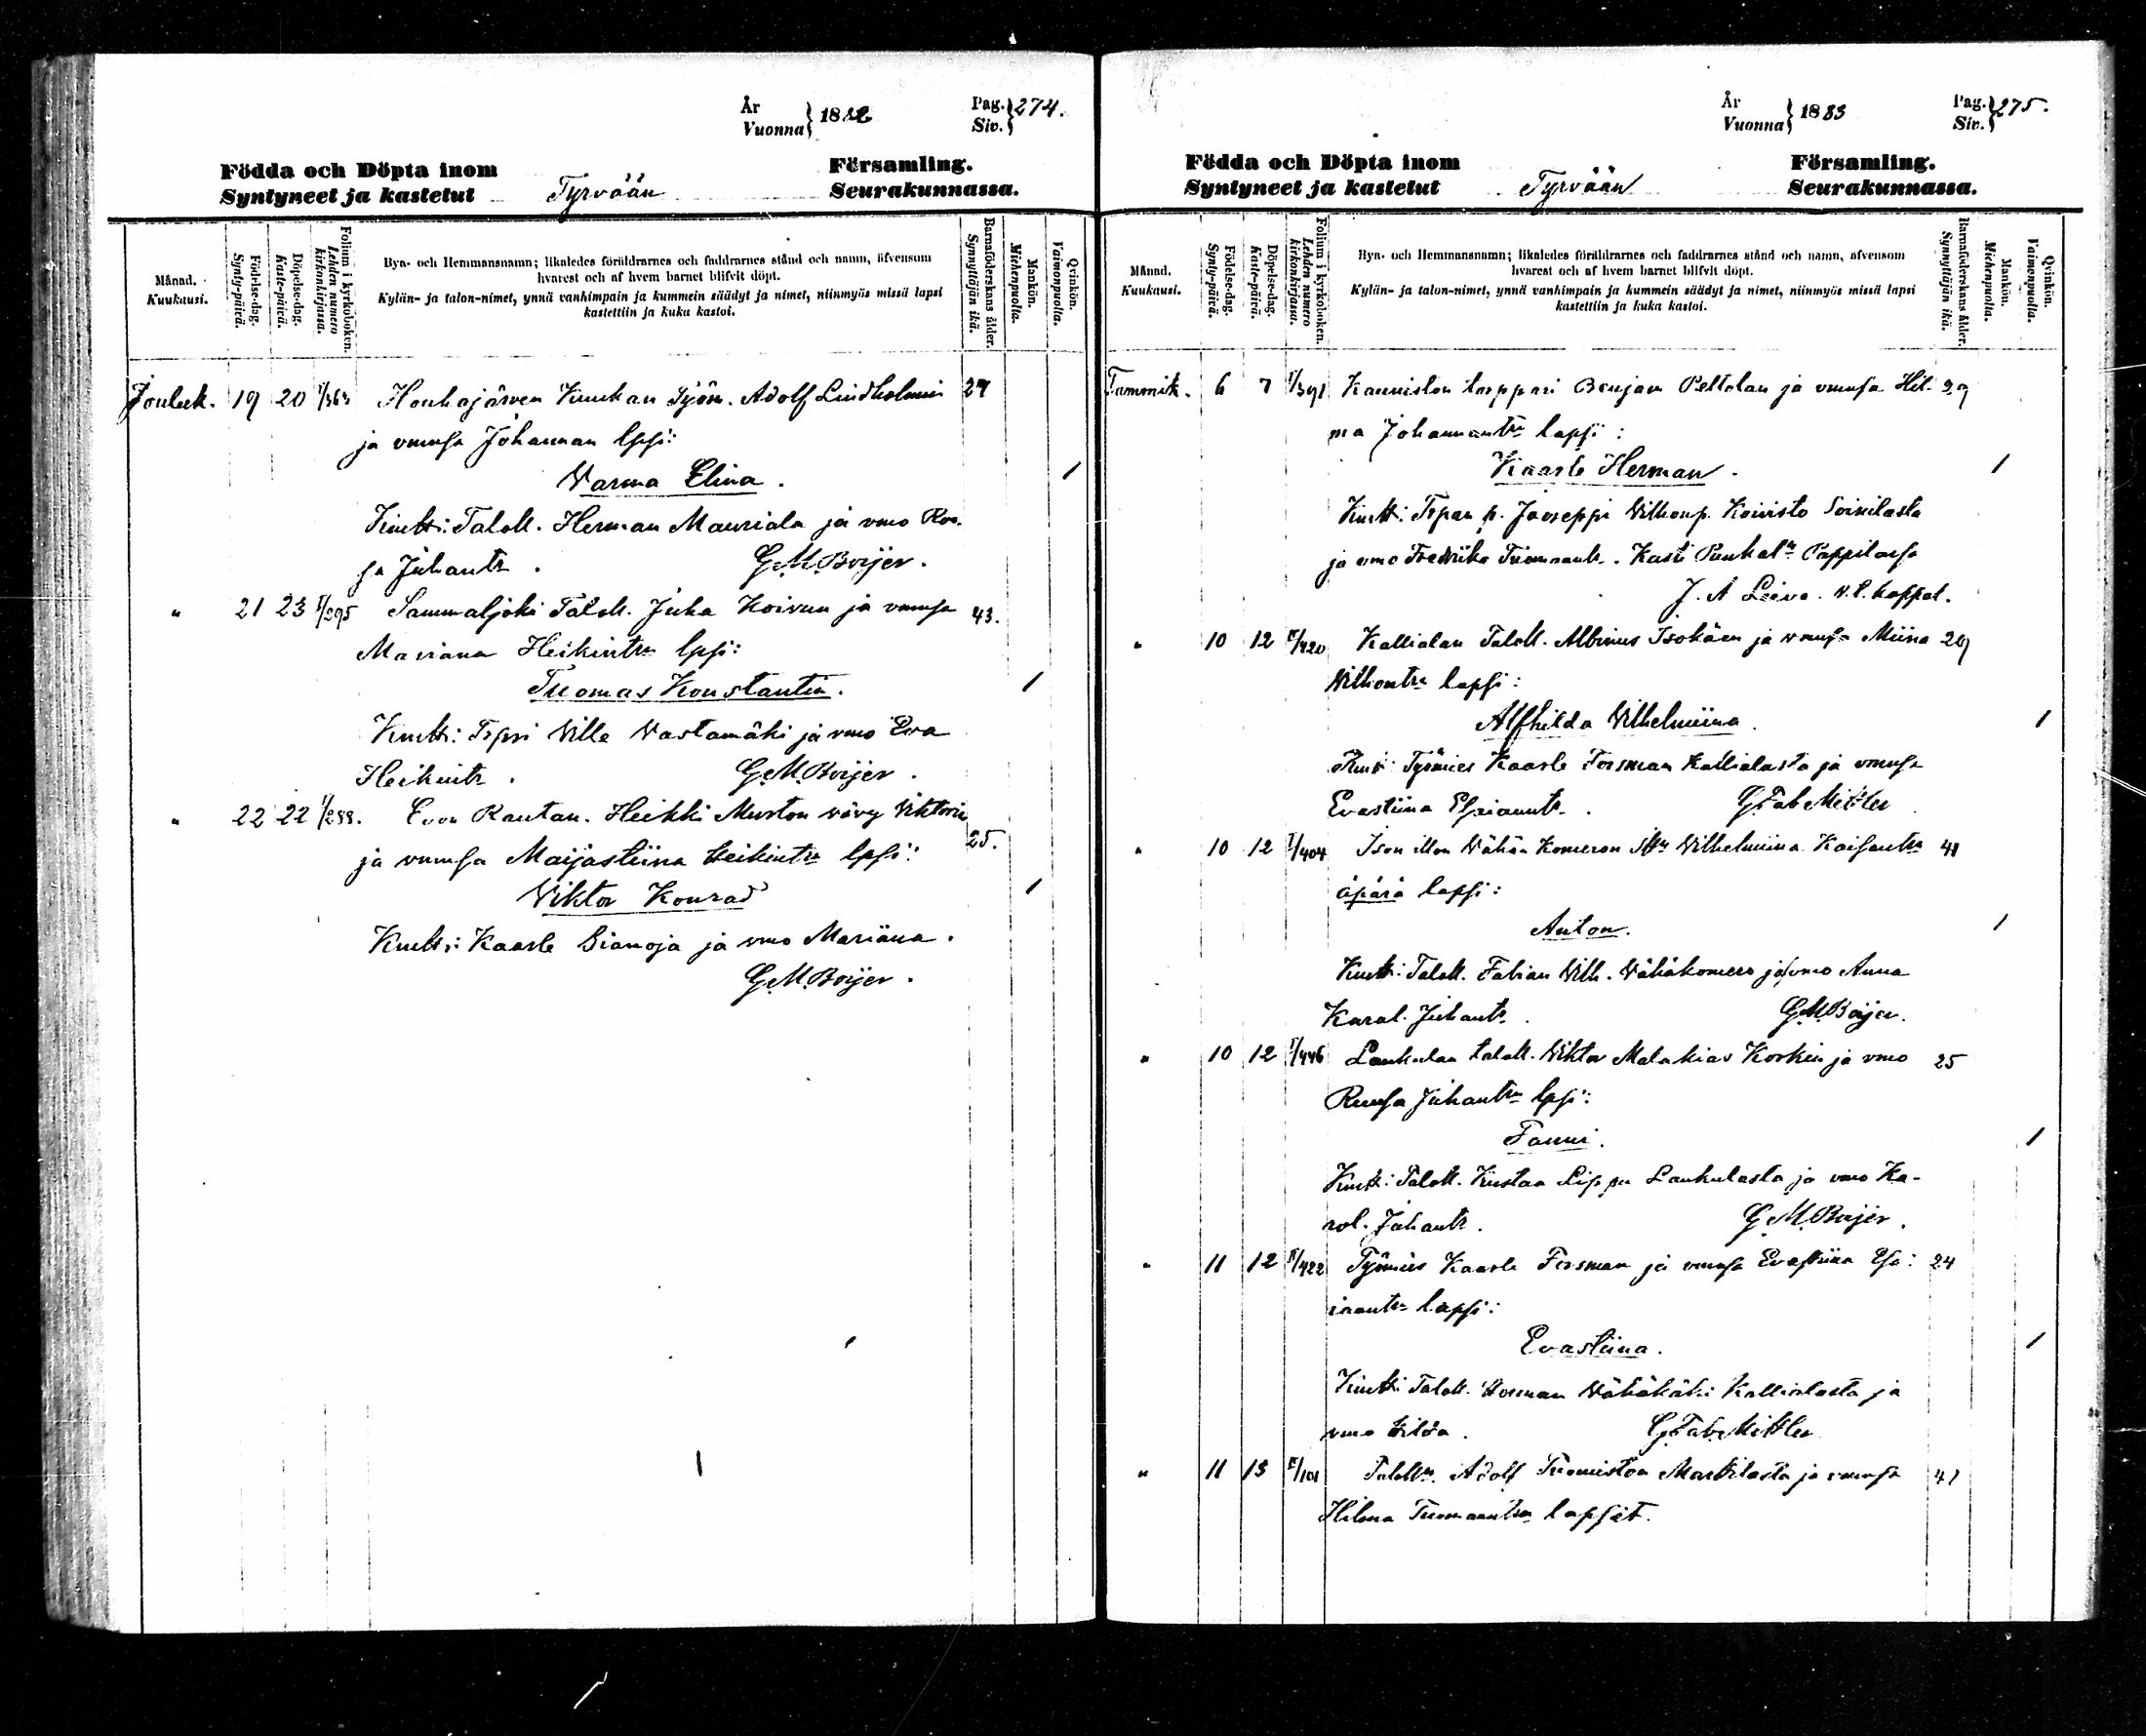 År
Vuonna } 1882
Pag.
Siv. } 274.
Födda och Döpta inom Församling.
Syntyneet ja kastetut Tyrvään Seurakunnassa.
Månad.
Kuukausi.
Födelse-dag.
Synty-päivä.
Döpelse-dag.
Kaste-päivä.
Folium i kyrkoboken.
Lehden numero kirkonkirjassa.
Byn- och Hemmansnamn; likaledes föräldrarnes och faddrarnes stånd och namn, äfvensom
hvarest och af hvem barnet blifvit döpt.
Kylän- ja talon-nimet, ynnä vanhimpain ja kummein säädyt ja nimet, niinmyös missä lapsi
kastettiin ja kuka kastoi.
Barnaföderskans ålder.
Synnyttäjän ikä.
Mankön.
Miehenpuolia.
Qvinkön.
Vaimonpuolia.
Jouluk. 19 20 Houhajärven Kuukan Työm. Adolf Lindholmin 27
ja vmnsa Johannan lpsi:
Varma Elina. 1
Kmtt: Taloll. Herman Mauriala ja vmo Roo-
sa Juhantr. G.M.Boijer.
" 21 23 I/295 Sammaljoki Taloll. Juha Koivun ja vmnsa 43.
Mariana Heikintrn lpsi:
Tuomas Konstantin. 1
Kmtt: Tppri Ville Vastamäki ja vmo Eva
Heikintr. G.M.Boijer.
" 22 22 I/288. Evon Rautan. Heikki Murton vävy Viktorin 25.
ja vmnsa Maijastiina Heikintrn lpsi:
Viktor Konrad 1
Kmtt: Kaarle Sianoja ja vmo Mariana.
G.M.Boijer.
År
Vuonna } 1883
Pag.
Siv. } 275.
Födda och Döpta inom Församling.
Syntyneet ja kastetut Tyrvään Seurakunnassa.
Månad.
Kuukausi.
Födelse-dag.
Synty-päivä.
Döpelse-dag.
Kaste-päivä.
Folium i kyrkoboken.
Lehden numero kirkonkirjassa.
Byn- och Hemmansnamn; likaledes föräldrarnes och faddrarnes stånd och namn, äfvensom
hvarest och af hvem barnet blifvit döpt.
Kylän- ja talon-nimet, ynnä vanhimpain ja kummein säädyt ja nimet, niinmyös missä lapsi
kastettiin ja kuka kastoi.
Barnaföderskans ålder.
Synnyttäjän ikä.
Mankön.
Miehenpuolia.
Qvinkön.
Vaimonpuolia.
Tammik. 6 7 I/391 Kanniston torppari Benjam Peltolan ja vmnsa Hil- 39
ma Johannantrn lapsi:
Kaarle Herman. 1
Kmtt: Tppan p. Jooseppi Vilhonp. Koivisto Soinilasta
ja vmo Fredrika Tuomaantr. Kasti Punkal:n Pappilassa
J. A Leivo. v.t. kappal.
" 10 12 II/420 Kallialan Taloll. Albinus Isokäen ja vmnsa Miina 29
Vilhontrn lapsi:
Alfhilda Vilhelmiina. 1
Kmt: Työmies Kaarle Forsman Kallialasta ja vmnsa
Evastiina Esaiaantr. G.Fab.Mittler
" 10 12 I/404 Ison illon Vähän Komeron Vilhelmiina Kaisantrn 41
äpärä lapsi:
Anton. 1
Kmtt: Taloll. Fabian Vilh. Vähäkomero ja vmo Anna
Karol. Juhantr. G.M.Boijer.
" 10 12 I/446 Laukulan taloll. Viktor Malakias Korkin ja vmo 25
Ruusa Juhantrn lpsi:
Fanni. 1
Kmtt: Taloll. Kustaa Lippu Laukulasta ja vmo Ka-
rol. Juhantr. G.M.Boijer.
" 11 12 II/422 Työmies Kaarle Forsman ja vmnsa Evastiina Esa- 24
iaantrn lapsi:
Evastiina. 1
Kmtt: Taloll. Herman Vähäkäki Kallialasta ja
vmo Hilda. G.Fab.Mittler
" 11 13 II/101 Taloll:n Adolf Tuomiston Marttilasta ja vmnsa 41
Hilma Tuomaantrn lapset.